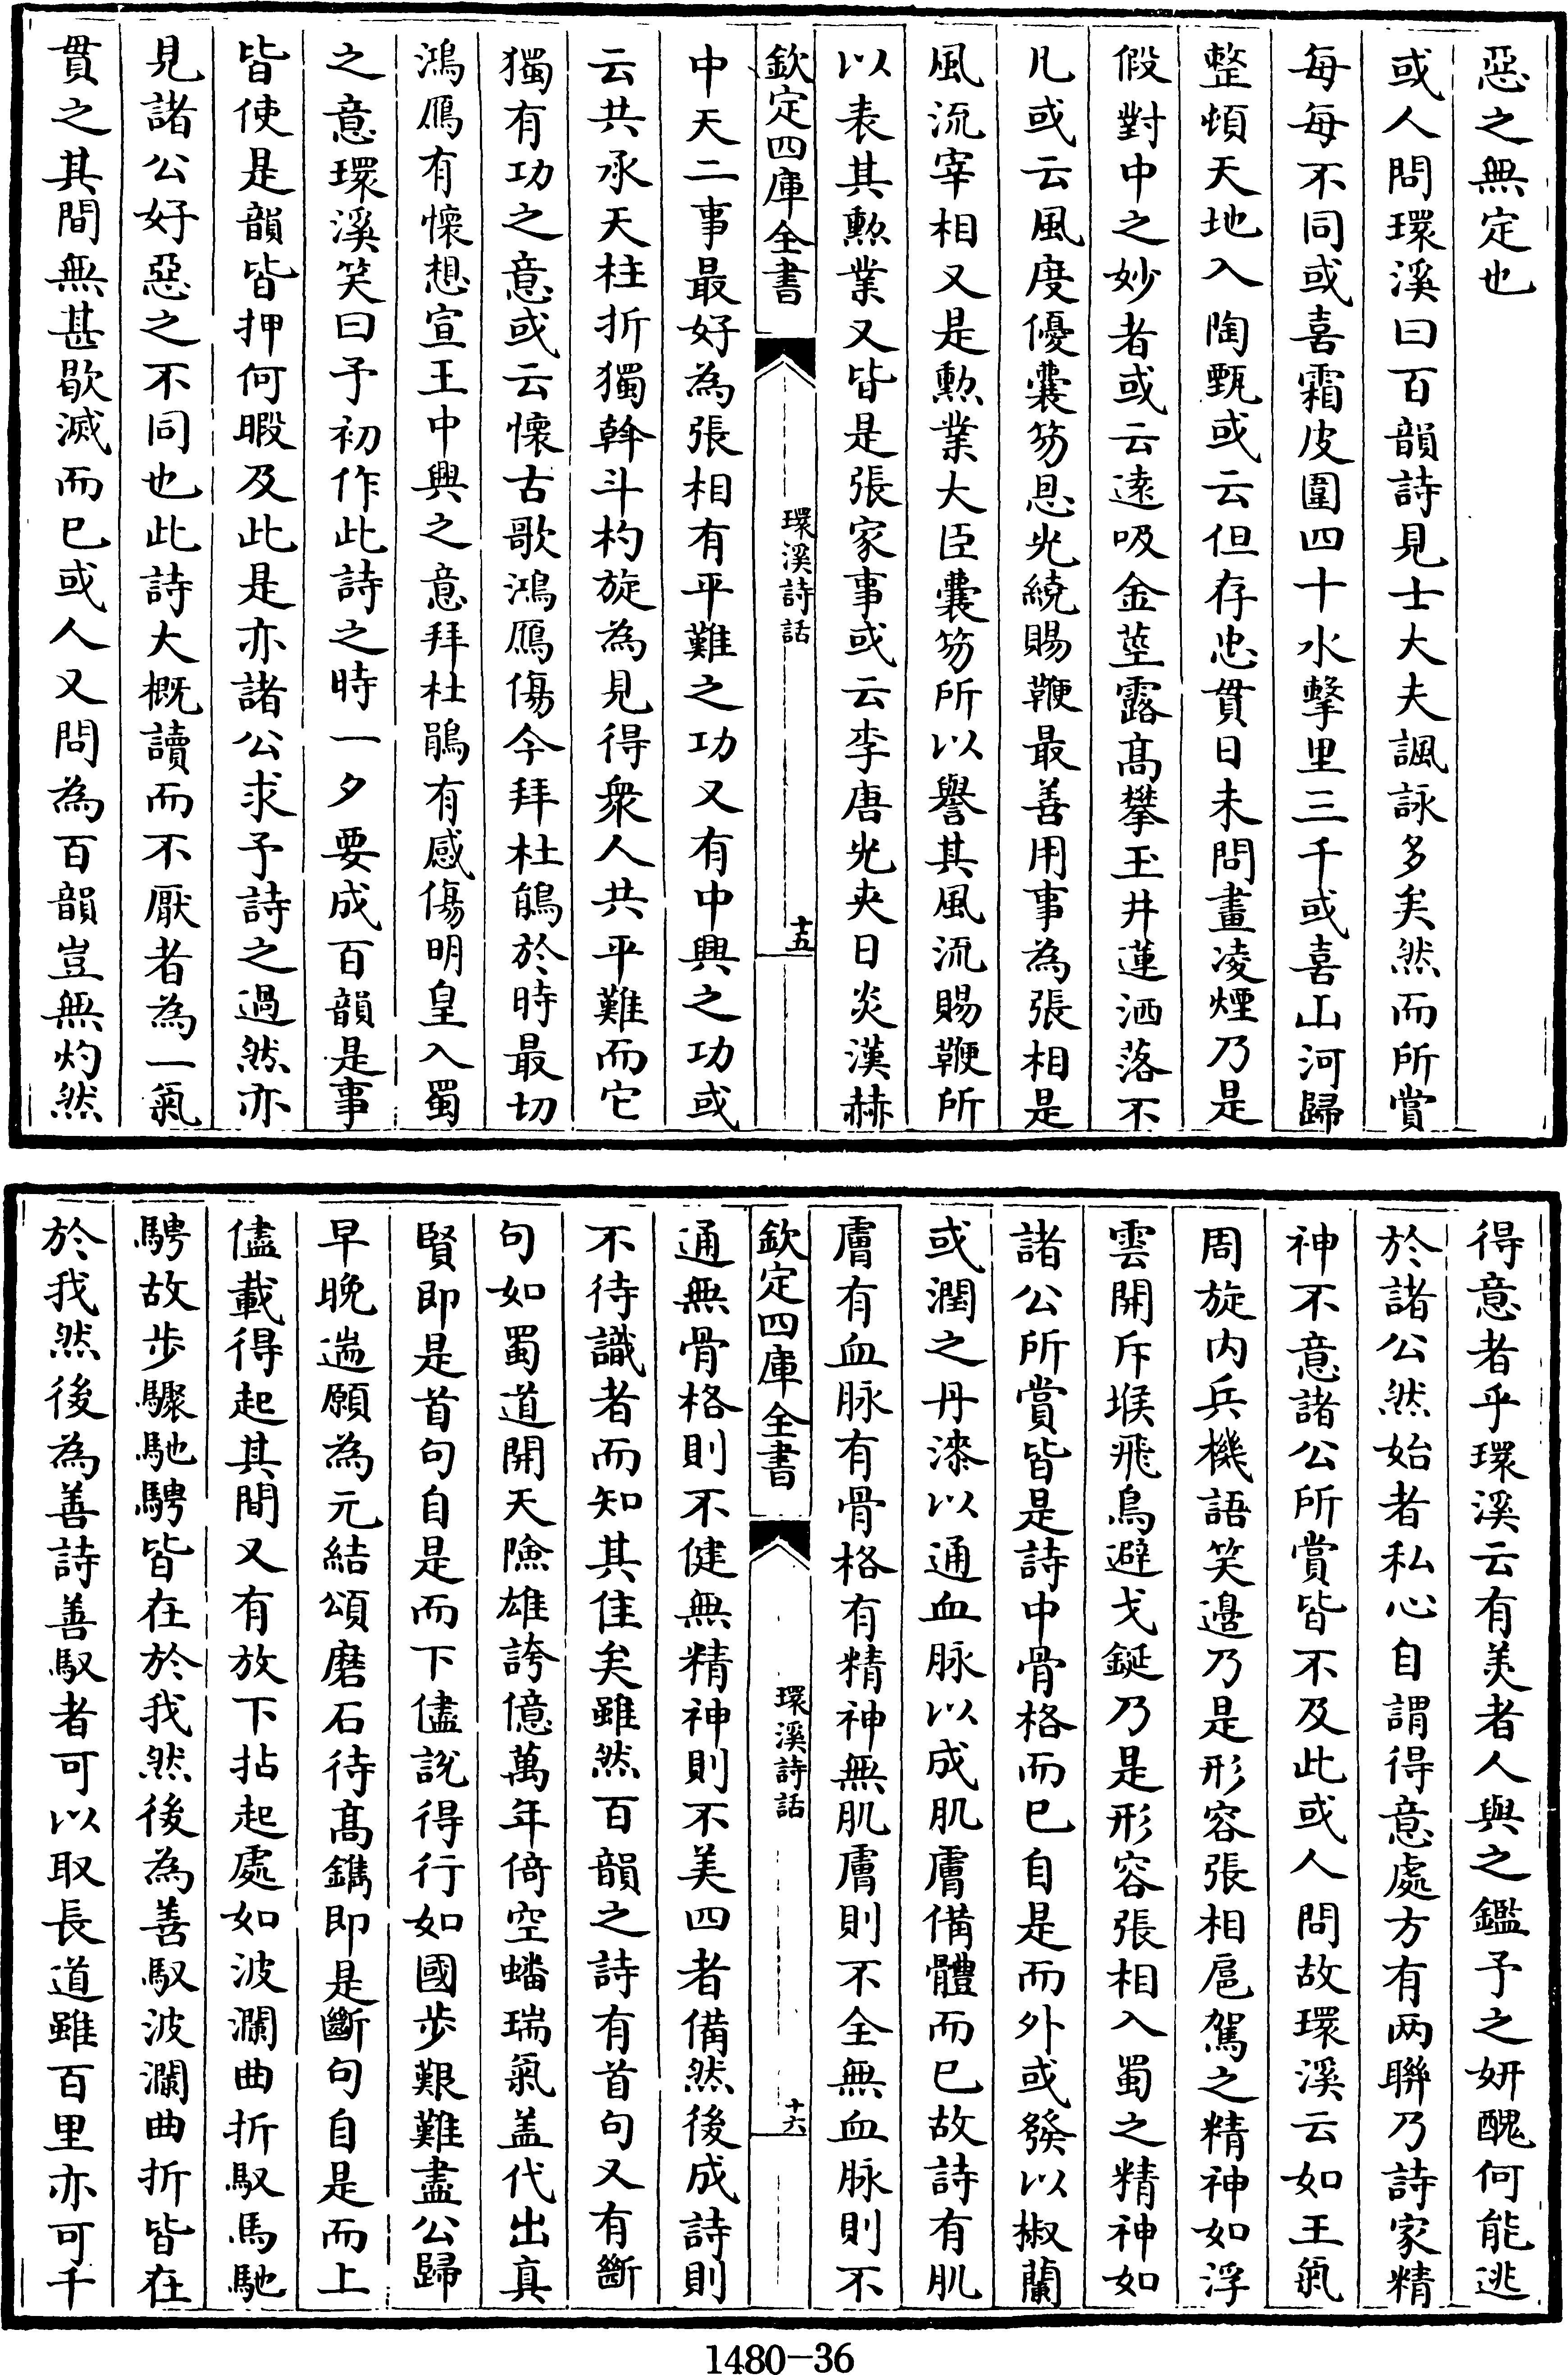 惡之無定也
或人問環溪曰百韻詩見士大夫諷詠多矣然而所賞
每每不同或喜霜皮圍四十水擊里三千或喜山河歸
整頓天地入陶甄或云但存忠貫日未問畫凌煙乃是
假對中之妙者或云逺吸金莖露髙攀玉井蓮洒落不
凡或云風度優囊笏恩光繞賜鞭最善用事為張相是
風流宰相又是勲業大臣囊笏所以譽其風流賜鞭所
以表其勲業又皆是張家事或云李唐光夾日炎漢赫
欽定四庫全書
環溪詩話
十五
中天二事最好為張相有平難之功又有中興之功或
云共承天柱折獨斡斗杓旋為見得衆人共平難而它
獨有功之意或云懷古歌鴻鴈傷今拜杜鵑於時最切
鴻鴈有懷想宣王中興之意拜杜鵑有感傷明皇入蜀
之意環溪笑曰予初作此詩之時一夕要成百韻是事
皆使是韻皆押何暇及此是亦諸公求予詩之過然亦
見諸公好惡之不同也此詩大概讀而不厭者為一氣
貫之其間無甚歇滅而已或人又問為百韻豈無灼然
得意者乎環溪云有美者人與之鑑予之妍醜何能逃
於諸公然始者私心自謂得意處方有兩聨乃詩家精
神不意諸公所賞皆不及此或人問故環溪云如王氣
周旋内兵機語笑邉乃是形容張相扈駕之精神如浮
雲開斥堠飛鳥避戈鋋乃是形容張相入蜀之精神如
諸公所賞皆是詩中骨格而已自是而外或發以椒蘭
或潤之丹漆以通血脉以成肌膚備體而已故詩有肌
膚有血脉有骨格有精神無肌膚則不全無血脉則不
欽定四庫全書
環溪詩話
十六
通無骨格則不健無精神則不美四者備然後成詩則
不待識者而知其佳矣雖然百韻之詩有首句又有斷
句如蜀道開天險雄誇億萬年倚空蟠瑞氣盖代出真
賢即是首句自是而下儘說得行如國步艱難盡公歸
早晚遄願為元結頌磨石待髙鐫即是斷句自是而上
儘載得起其間又有放下拈起處如波瀾曲折馭馬馳
騁故步驟馳騁皆在於我然後為善馭波瀾曲折皆在
於我然後為善詩善馭者可以取長道雖百里亦可千
1480-36